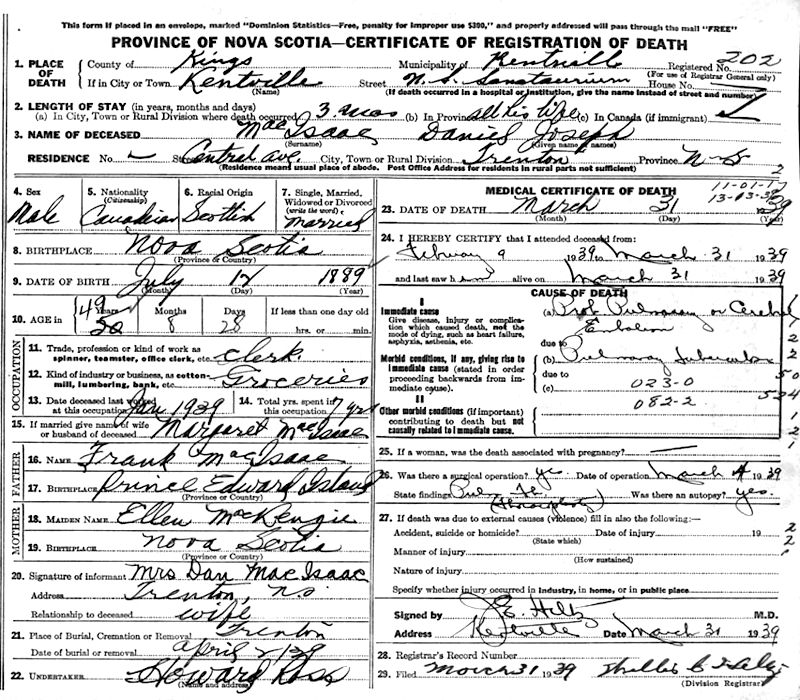 This form if placed in an envelope, marked "Dominion Statistics—Free, penalty for improper use $300," and properly addressed will pass through the mail "FREE"
PROVINCE OF NOVA SCOTIA—CERTIFICATE OF REGISTRATION OF DEATH
1. PLACE OF DEATH County of Kings Municipality of Kentville Registered No. 202
(For use of Registrar General only)
If in City or Town Kentville Street N.S. Sanatorium House No.
(Name) (If death occurred in a hospital or institution, give the name instead of street and number)
2. LENGTH OF STAY (in years, months and days)
(a) In City, Town or Rural Division where death occurred 3 mos (b) In Province all his life (c) In Canada (if immigrant)
3. NAME OF DECEASED MacIsaac Daniel Joseph
(Surname) (Given name or names)
RESIDENCE No. Street Central ave. City, Town or Rural Division Trenton Province N-S
(Residence means usual place of abode. Post Office Address for residents in rural parts not sufficient) 2
4. Sex Male
5. Nationality (Citizenship) Canadian
6. Racial Origin Scottish
7. Single, Married, Widowed or Divorced (write the word) married
8. BIRTHPLACE Nova Scotia
(Province or Country)
9. DATE OF BIRTH July 17 1889
(Month) (Day) (Year)
10. AGE in 49 Years Months 8 Days 28 If less than one day old hrs. or min.
OCCUPATION
11. Trade, profession or kind of work as spinner, teamster, office clerk, etc. clerk
12. Kind of industry or business, as cotton-mill, lumbering, bank, etc. Groceries
13. Date deceased last worked at this occupation Jan 1939 14. Total yrs. spent in this occupation 7 yrs
15. If married give name of wife or husband of deceased Margaret MacIsaac
FATHER
16. NAME Frank MacIsaac
17. BIRTHPLACE Prince Edward Island
(Province or Country)
MOTHER
18. MAIDEN NAME Ellen MacKenzie
19. BIRTHPLACE Nova Scotia
(Province or Country)
20. Signature of informant Mrs Dan MacIsaac
Address Trenton, N.S.
Relationship to deceased wife
21. Place of Burial, Cremation or Removal Trenton
Date of burial or removal april 2/39
22. UNDERTAKER Howard Ross
(Name and address)
MEDICAL CERTIFICATE OF DEATH
11-01-17
23. DATE OF DEATH March 31 1939
(Month) (Day) (Year)
24. I HEREBY CERTIFY that I attended deceased from:
February 9 1939 to March 31 1939
and last saw him alive on March 31 1939
CAUSE OF DEATH
I
Immediate cause
Give disease, injury or complication which caused death, not the mode of dying, such as heart failure, asphyxia, asthenia, etc.
(a) Prob. Pulmonary or Cerebral Embolism
due to
Morbid conditions, if any, giving rise to immediate cause (stated in order proceeding backwards from immediate cause).
(b) Pulmonary Tuberculosis
due to
(c) 023-0
082-2
II
Other morbid conditions (if important) contributing to death but not causally related to immediate cause.
25. If a woman, was the death associated with pregnancy?
26. Was there a surgical operation? yes. Date of operation March 4 1939
State findings Was there an autopsy? yes.
27. If death was due to external causes (violence) fill in also the following:—
Accident, suicide or homicide? Date of injury 19
(State which)
Manner of injury
(How sustained)
Nature of injury
Specify whether injury occurred in industry, in home, or in public place
Signed by J.E. Hiltz M.D.
Address Kentville Date March 31 1939
28. Registrar's Record Number
29. Filed March 31 1939
(Division Registrar)